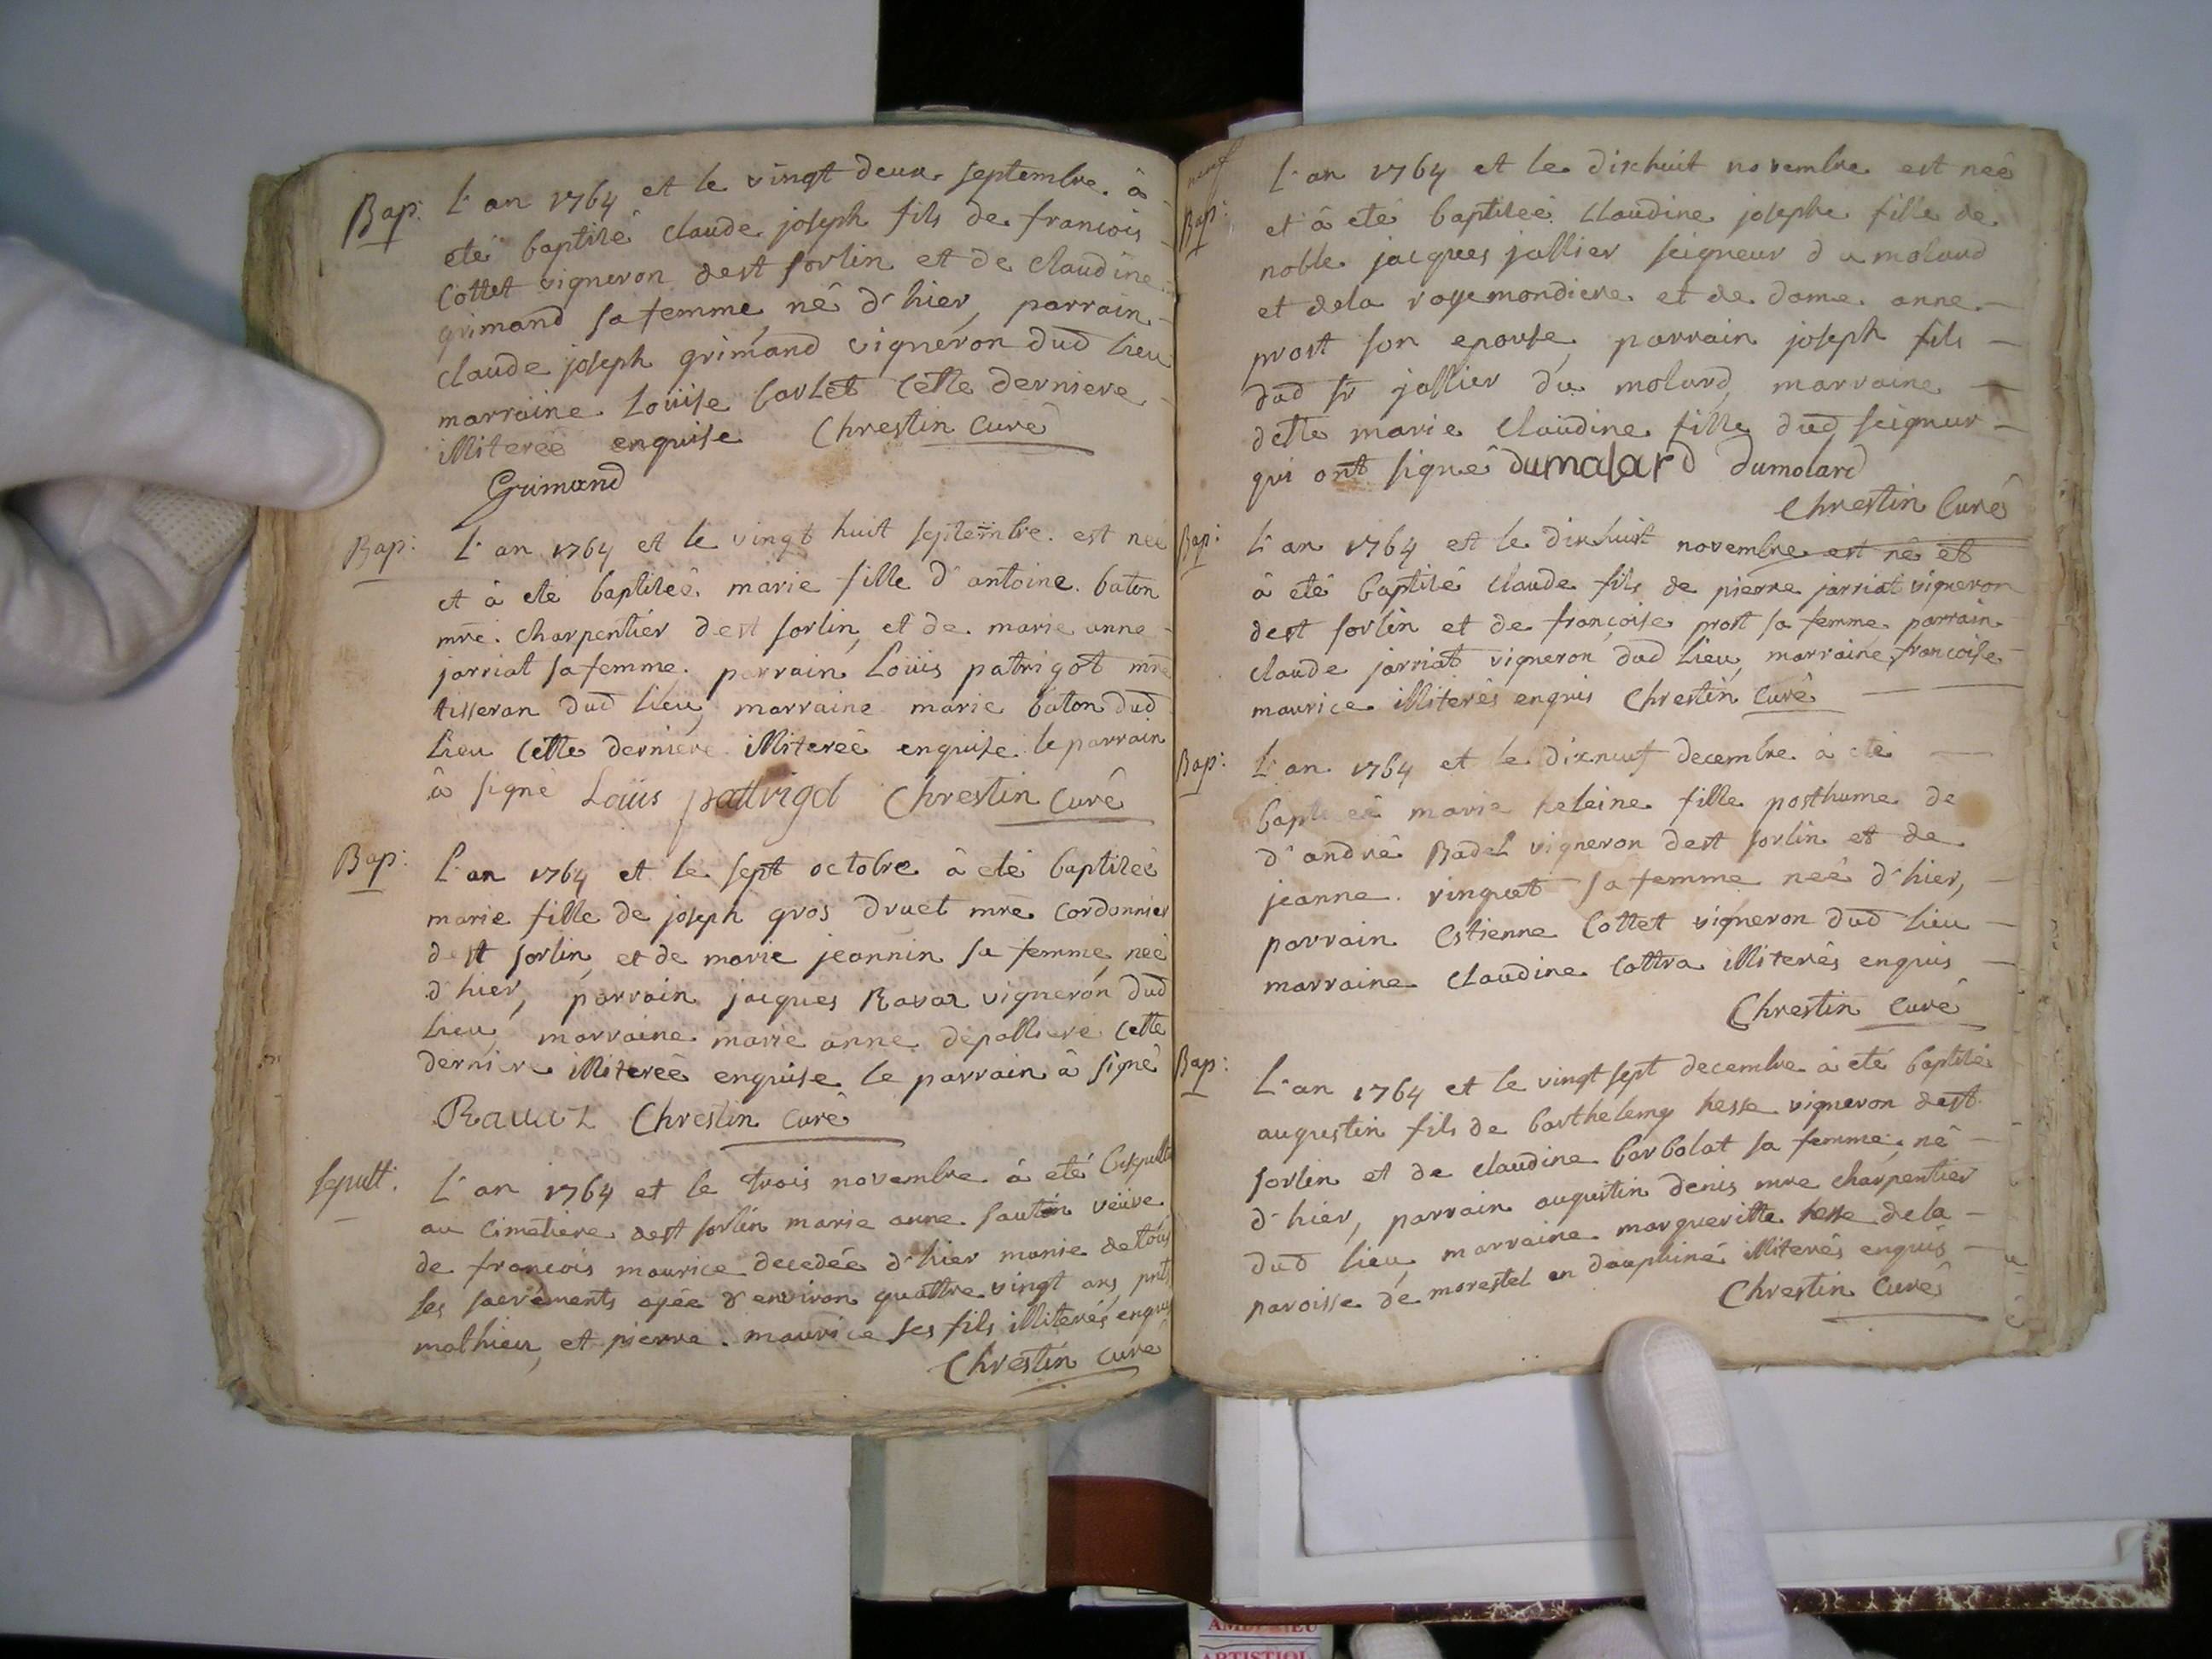 Bap: L'an 1764 et le vingt deux septembre à
eté baptisé claude joseph fils de francois
Cottet vigneron dest sorlin et de claudine
grimand sa femme, né d'hier, parrain
claude joseph grimand vigneron dud lieu
marraine Loüise Carlet cette derniere
illitereé enquise Chrestin Curé
Grimand
Bap: L'an 1764 et le vingt huit septembre est neé
et à eté baptiseé marie fille d'antoine baton
mre charpentier dest sorlin, et de marie anne
jarriat sa femme. parrain Loüis patrigot mre
tisseran dud lieu, marraine marie baton dud
lieu cette derniere illitereé enquise le parrain
à signé Loüis patrigot Chrestin Curé
Bap: L'an 1764 et le sept octobre à eté baptiseé
marie fille de joseph gros druet mre cordonnier
dest sorlin, et de marie jeannin sa femme, neé
d'hier, parrain jacques Ravaz vigneron dud
lieu, marraine marie anne depalliere cette
derniere illitereé enquise le parrain à signé
Ravaz Chrestin Curé
sepult: L'an 1764 et le trois novembre à eté
au cimetiere dest sorlin marie anne sautin veuve
de francois maurice decedeé d'hier munie de tous
ses sacrements ageé d'environ quattre vingt ans, pnts
mathieu, et pierre maurice ses fils illiterés enquis
Chrestin Curé
neuf
Bap: L'an 1764 et le dixhuit novembre est neé
et à eté baptiseé Claudine josephe fille de
noble jacques jallier seigneur du molard
et dela rogemondiere et de dame anne
prost son epouse, parrain joseph fils
dud sr jallier du molard, marraine
delle marie Claudine fille dud seigneur
qui ont signé dumalard dumolard
Chrestin Curé
Bap: L'an 1764 et le dixhuit novembre est né et
à eté baptisé claude fils de pierre jarriat vigneron
dest sorlin et de francoise prost sa femme parrain
claude jarriat vigneron dud lieu, marraine francoise
maurice illiterés enquis Chrestin Curé
Bap: L'an 1764 et le dixneuf decembre à eté
baptiseé marie heleine fille posthume de
d'andré Badel vigneron dest sorlin et de
jeanne vinquat sa femme neé d'hier,
parrain Estienne Cottet vigneron dud lieu
marraine Claudine Cottra illiterés enquis
Chrestin Curé
Bap: L'an 1764 et le vingt sept decembre à eté baptisé
augustin fils de barthelemy hesse vigneron dest
sorlin et de claudine barbolat sa femme, né
d'hier, parrain augustin denis mre charpentier
dud lieu, marraine margueritte hesse dela
paroisse de morestel en dauphiné illiterés enquis
Chrestin Curé